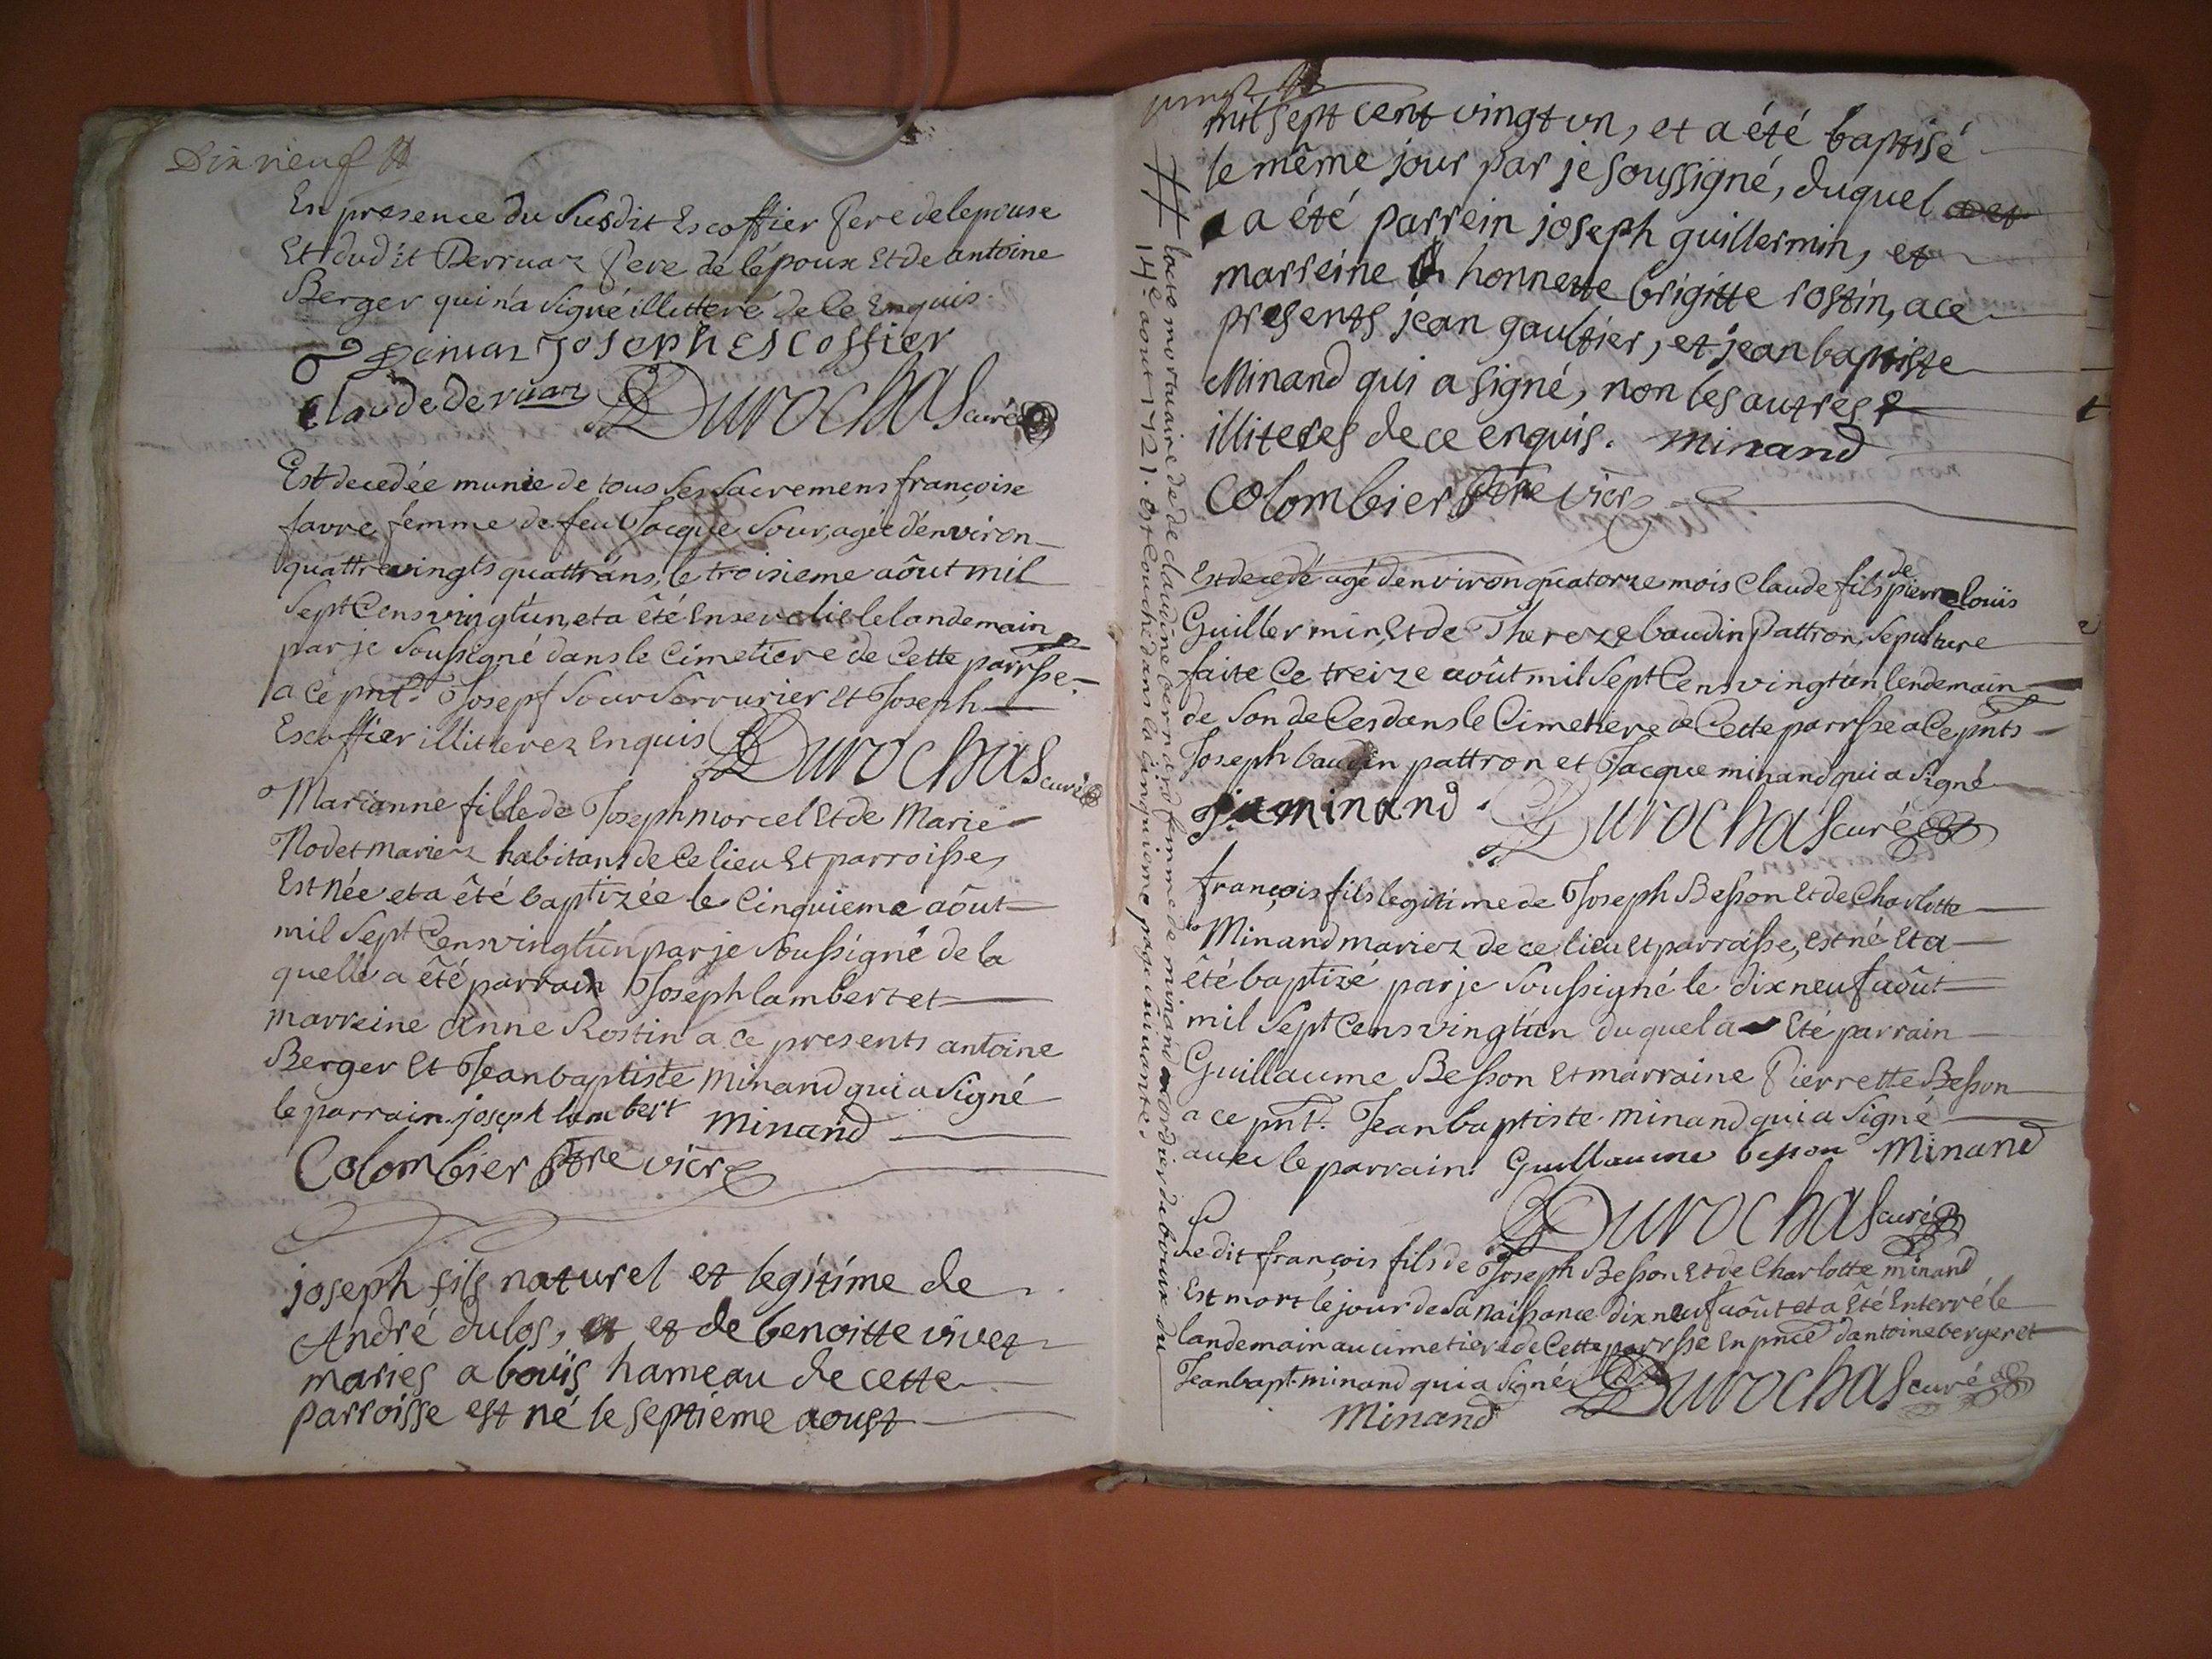 Dixneuf
En presence du Susdit Escoffier Pere de lepouse
Et dudit Derruaz Pere de lépoux Et de antoine
Berger qui n'a Signé illitteré de ce Enquis.
Joseph Escoffier
Claude Deruaz Durochas curé
Est decedée munie de tous Ses Sacremens françoise
favre femme de feu Jacque Sour, agée d'environ
quattrevingts quattr'ans, le troisieme aôut mil
Sept Cens vingt ún et a êté Ensevelie le landemain
par je Soussigné dans le Cimetiere de Cette parrsse
a ce pnts Josepf Sour Serrurier Et Joseph
Escoffier illitterez Enquis Durochas curé
Marianne fille de Joseph morcel Et de Marie
Nodet mariez habitans de Ce lieu Et parroisse,
Est Née et a êté baptizée le Cinquieme aôut
mil Sept Cens vingt ún par je Soussigné de la
quelle a êté parrain Joseph lambert et
marreine Anne Rostin a ce presents antoine
Berger Et Jean baptiste Minand qui a Signé
le parrain. joseph lambert Minand
Colombier Ptre vicr
joseph fils naturel et legitime de
André dulos, et de benoitte vivet
mariés a bouis hameau de cette
parroisse est né le septiéme aoust
vingt
mil sept cent vingt un, et a été baptisé
le même jour par je soussigné, duquel
a été parrein joseph guillermin, et
marreine honnette brigitte rostin, a ce
presents jean gaultier, et jean baptiste
Minand qui a signé, non les autres
illiteres de ce enquis. Minand
Colombier Ptre vicr
l'acte mortuaire de de claudine bernard femme de minand cordier de bouis du
14e aout 1721. est couché dans la cinquieme page suivante.
Est decedé agé denviron quatorze mois Claude fils de pierre loüis
Guillermin, Et de Thereze baudin Pattron, Sepulture
faite Ce treize août mil Sept Cens vingt ún lendemain
de Son deces dans le Cimetiere de Cette parrsse a Ce pnts
Joseph baudin pattron et Jacque minand qui a Signé
J. minand. Durochas curé
françois fils legitime de Joseph Besson Et de Charlotte
Minand mariez de ce lieu Et parroisse, est né Et a
êté baptizé par je Soussigné le dixneuf aôut
mil Sept Cens vingt ún du quel a Eté parrain
Guillaume Besson Et marraine Pierrette Besson
a ce pnt. Jean baptiste minand qui a Signé
avec le parrain. Guillaume besson Minand
Durochas curé
Le dit françois fils de Joseph Besson Et de Charlotte minand
Est mort le jour de Sa Naissance dix neuf aôut et a Eté Enterré le
landemain au cimetiere de Cette parrsse En pnce d'antoine berger et
Jean bapt. minand qui a Signé Durochas curé
Minand